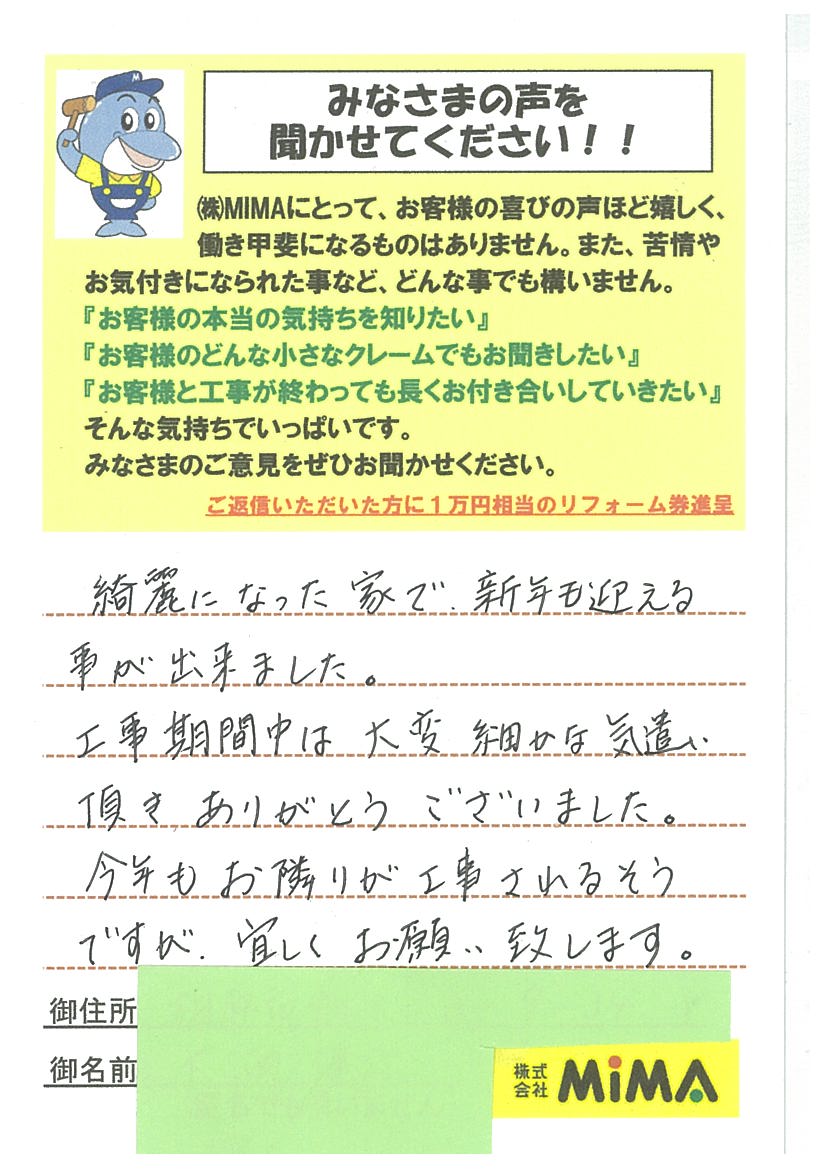 みなさまの声を
聞かせてください！！
㈱MIMAにとって、お客様の喜びの声ほど嬉しく、
働き甲斐になるものはありません。また、苦情や
お気付きになられた事など、どんな事でも構いません。
『お客様の本当の気持ちを知りたい』
『お客様のどんな小さなクレームでもお聞きしたい』
『お客様と工事が終わっても長くお付き合いしていきたい』
そんな気持ちでいっぱいです。
みなさまのご意見をぜひお聞かせください。
ご返信いただいた方に１万円相当のリフォーム券進呈
綺麗になった家で、新年も迎える
事が出来ました。
工事期間中は大変細かな気遣い
頂きありがとうございました。
今年もお隣りが工事されるそう
ですが、宜しくお願い致します。
御住所
御名前
株式
会社 MiMA
M